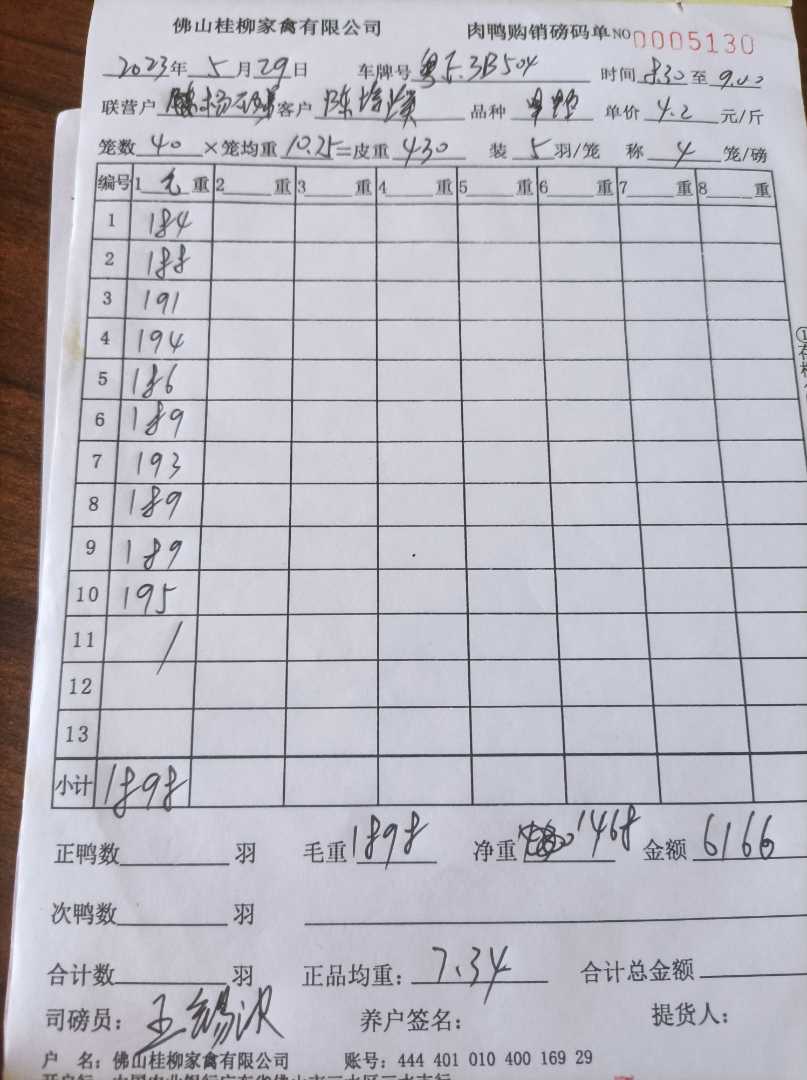 佛山桂柳家禽有限公司 肉鸭购销磅码单 NO 0005130
2023年 5月29日 车牌号 粤 3B504 时间 8.30 至 9.00
联营户 客户 陈 品种 单价 4.2 元/斤
笼数 40 ×笼均重 10.25=皮重 430 装 5 羽/笼 称 4 笼/磅
编号 1 毛 重 2 重 3 重 4 重 5 重 6 重 7 重 8 重
1 184
2 188
3 191
4 194
5 186
6 189
7 193
8 189
9 189
10 195
11 /
12
13
小计 1898
正鸭数 羽 毛重 1898 净重 1468 金额 6166
次鸭数 羽
合计数 羽 正品均重: 7.34 合计总金额
司磅员: 王锡波 养户签名: 提货人:
户 名: 佛山桂柳家禽有限公司 账号: 444 401 010 400 169 29